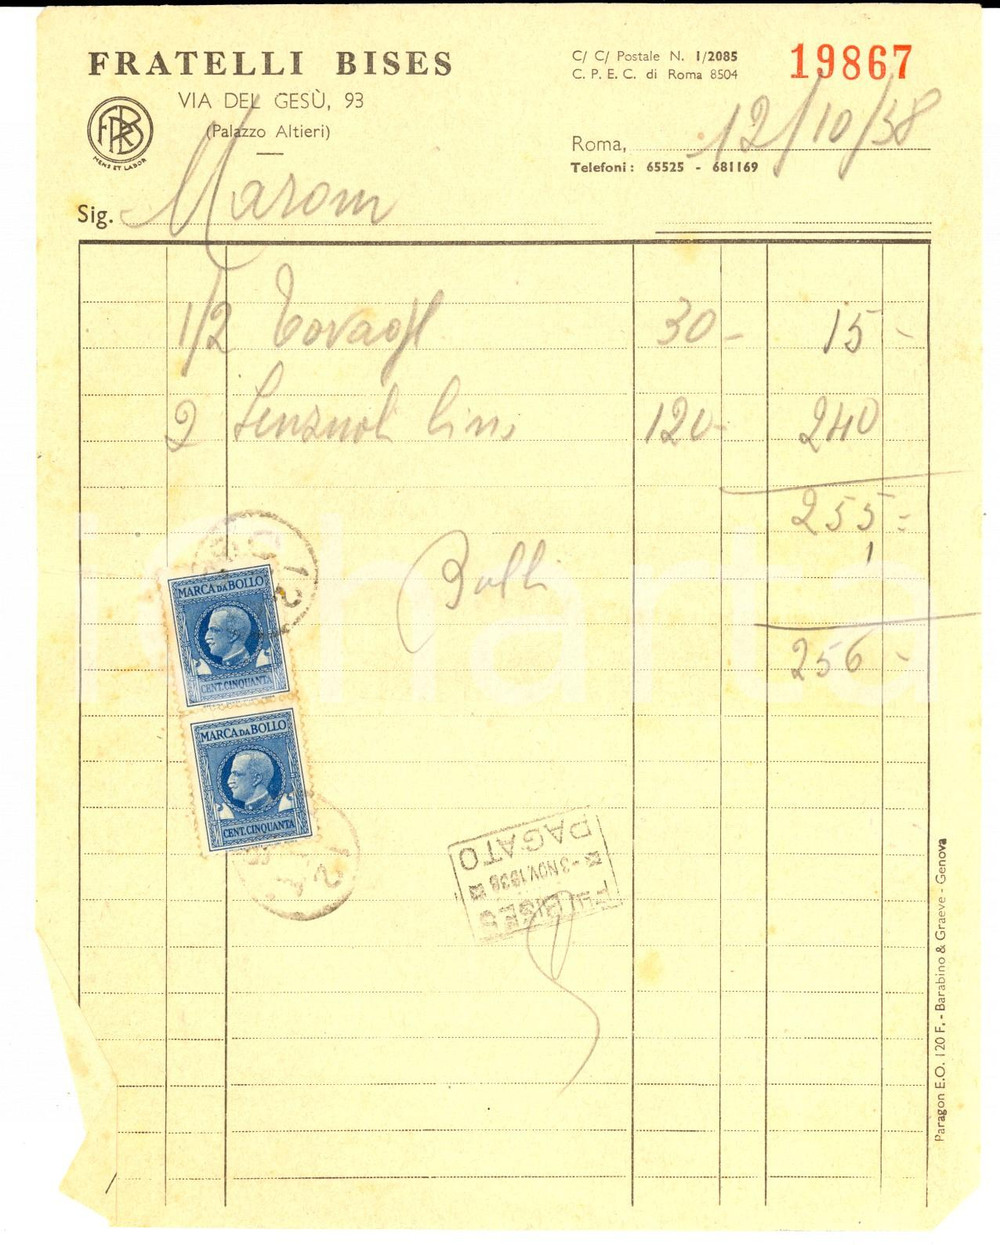 FRATELLI BISES
VIA DEL GESÙ, 93
(Palazzo Altieri)
FRB
MENS ET LABOR
C/ C/ Postale N. 1/2085
C. P. E. C. di Roma 8504
19867
Roma, 12/10/38
Telefoni: 65525 - 681169
Sig. Maroni
1/2 Tovagl 30- 15-
2 Lenzuoli lino 120- 240
255-
Bolli 1
256-
MARCA DA BOLLO
CENT. CINQUANTA
MARCA DA BOLLO
CENT. CINQUANTA
F.LLI BISES
-3 NOV. 1938
PAGATO
Paragon E.O. 120 F. - Barabino & Graeve - Genova